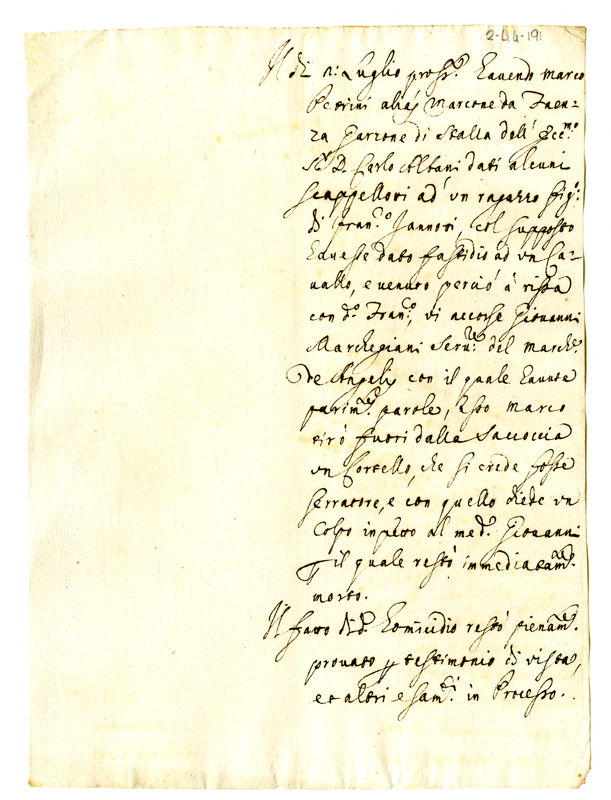 2-44-191
Il dì 2: Luglio pross.º havendo Marco
Petrini alias Marcone da Faen=
za Garzone di Stalla dell' Ecc.mo
Sr. D. Carlo Albani dati alcuni
scappellotti ad un ragazzo fig.º
di Fran.co Jannoti, col supposto
havesse dato fastidio ad un Ca=
vallo, e venuto perciò à rissa
con d.º Fran.co, vi accorse Giovanni
Marchegiani Serv.re del March.e
De Angelis con il quale havute
parim.te parole, esso Marco
tirò fuori dalla Saccoccia
un Cortello, che si crede fosse
serratore, e con quello diede un
Colpo in petto al med.º Giovanni
p il quale restò immediatam.te
morto.
Il fatto di d.º homicidio restò pienam.te
provato p testimonio di vista,
et altri esam.ti in Processo.